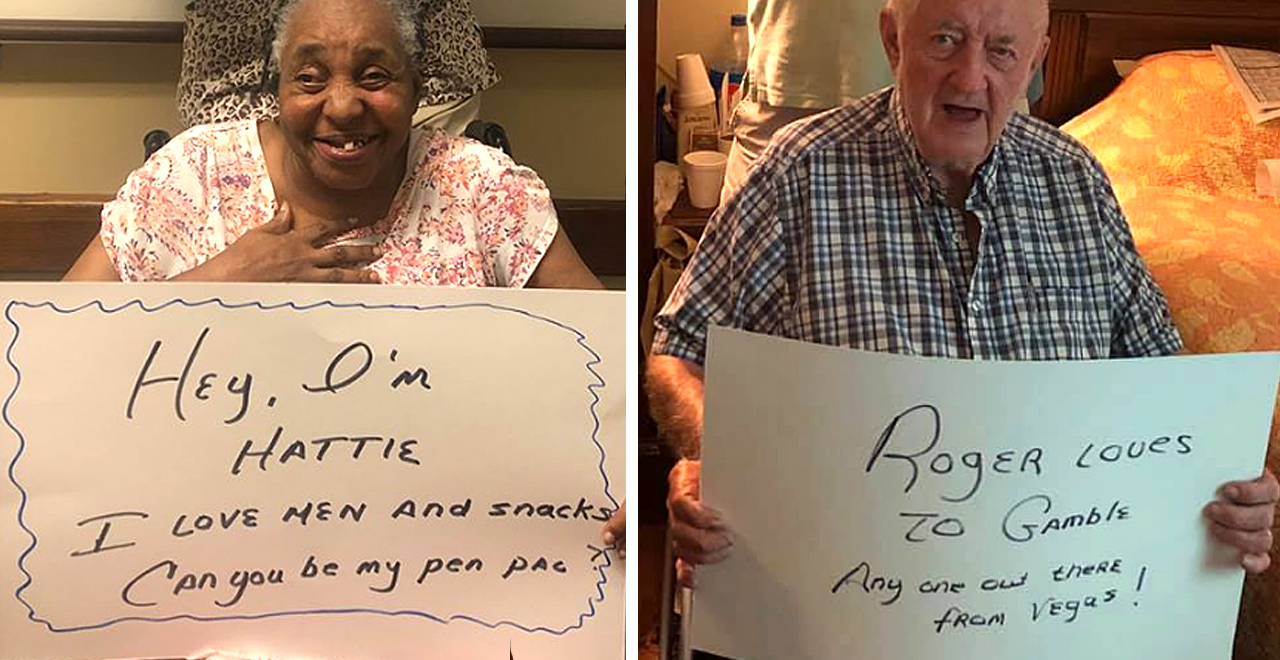 Hey, I'm
HATTIE
I LOVE MEN And snacks
Can you be my pen pal
ROGER LOVES
TO GAMBLE
Any one out there
from Vegas!